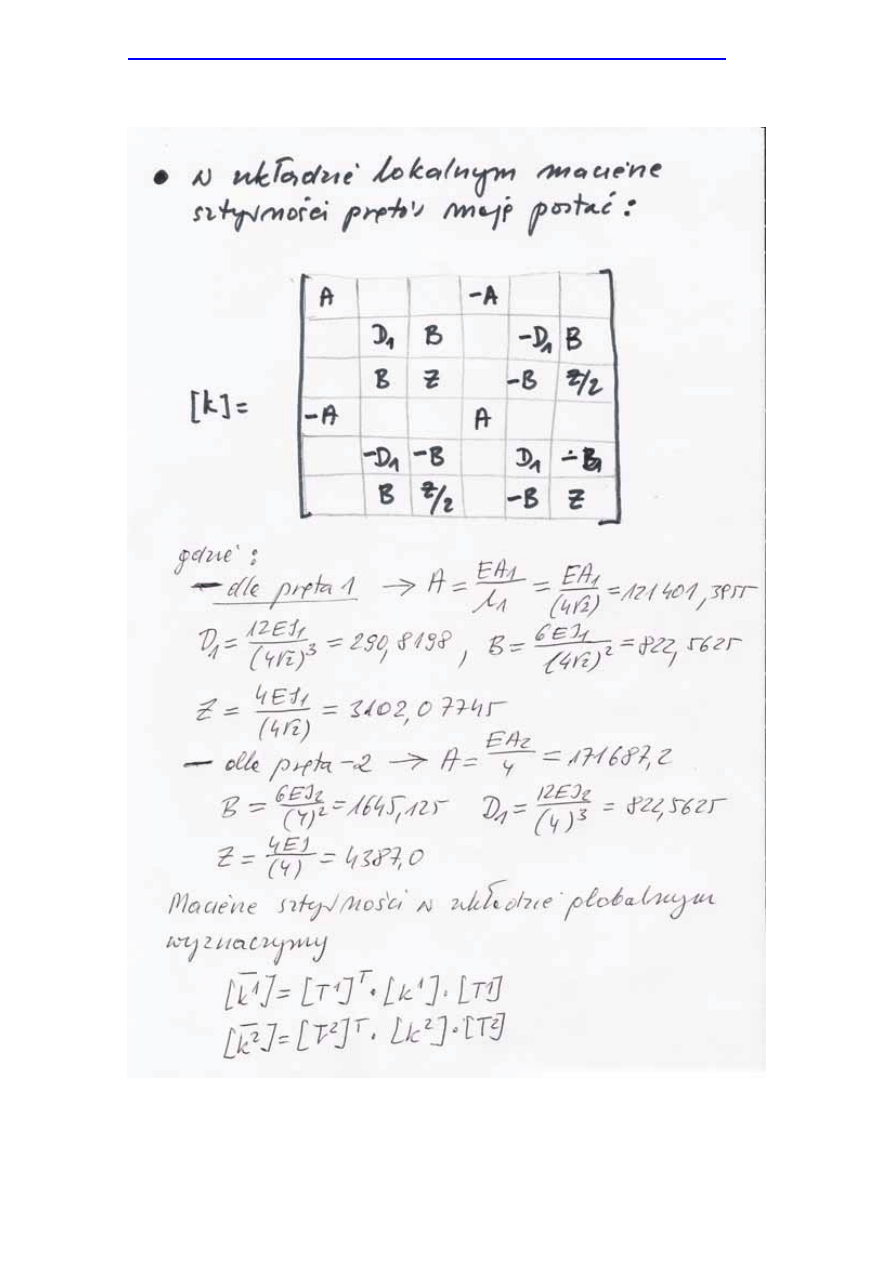 • w układzie lokalnym macierze
sztywności prętów mają postać:
A -A
D1 B -D1 B
B Z -B Z/2
[k]=
-A A
-D1 -B D1 -B
B Z/2 -B Z
gdzie:
— dla pręta 1 → A = EA1/l1 = EA1/(4√2) = 121401,3955
D1 = 12EJ1/(4√2)³ = 290,8198 , B = 6EJ1/(4√2)² = 822,5625
Z = 4EJ1/(4√2) = 3102,07745
— dla pręta -2 → A = EA2/4 = 171687,2
B = 6EJ2/(4)² = 1645,125 D1 = 12EJ2/(4)³ = 822,5625
Z = 4EJ/(4) = 4387,0
Macierze sztywności w układzie globalnym
wyznaczymy
[k̄¹] = [T¹]ᵀ · [k¹] · [T1]
[k̄²] = [T²]ᵀ · [k²] · [T²]